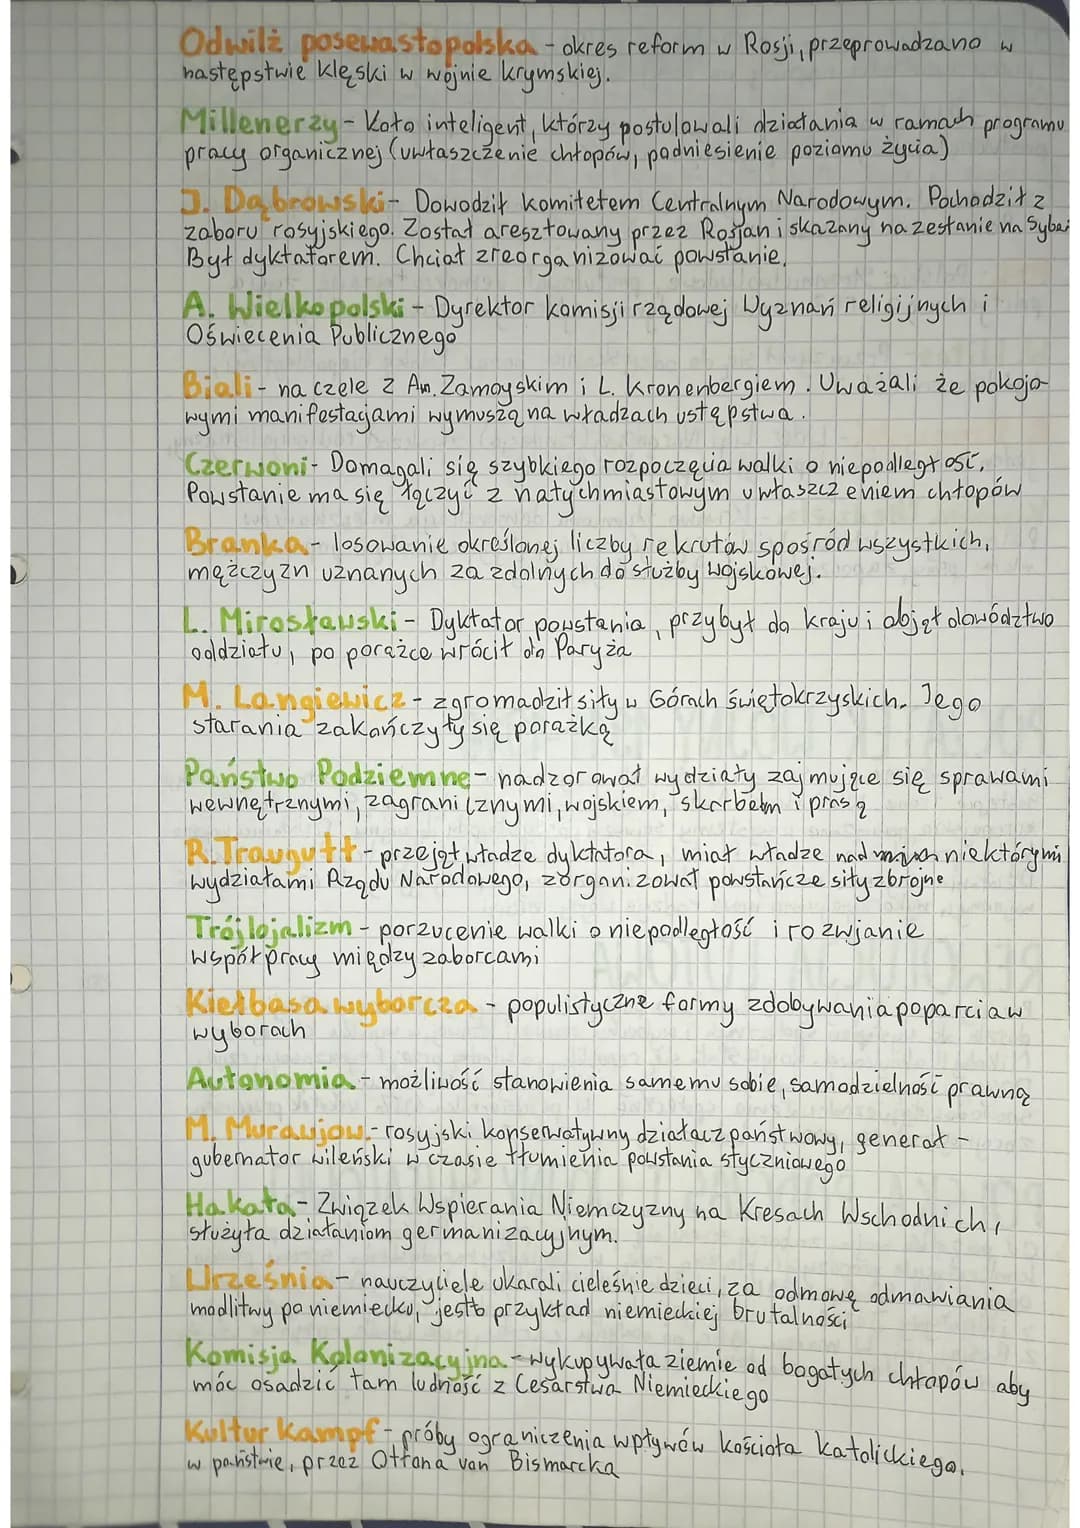 Odwilż posewastopolska - okres reform w Rosji, przeprowadzano w
następstwie klęski w wojnie krymskiej.
Millenerzy - Koło inteligent, którzy postulowali działania w ramach programu
pracy organicznej (uwłaszczenie chłopów, podniesienie poziomu życia)
J. Dąbrowski - Dowodził komitetem Centralnym Narodowym. Pochodził z
zaboru rosyjskiego. Został aresztowany przez Rosjan i skazany na zesłanie na Sybe
Był dyktatorem. Chciał zreorganizować powstanie.
A. Wielkopolski - Dyrektor komisji rządowej Wyznań religijnych i
Oświecenia Publicznego
Biali - na czele z An. Zamoyskim i L. Kronenbergiem. Uważali że pokojo-
wymi manifestacjami wymuszą na władzach ustępstwa.
Czerwoni - Domagali się szybkiego rozpoczęcia walki o niepodległość.
Powstanie ma się łączyć z natychmiastowym uwłaszczeniem chłopów
Branka - losowanie określonej liczby rekrutów spośród wszystkich,
mężczyzn uznanych za zdolnych do służby wojskowej.
L. Mirosławski - Dyktator powstania, przybył do kraju i objął dowództwo
oddziału, po porażce wrócił do Paryża
M. Langiewicz - zgromadził siły w Górach świętokrzyskich. Jego
starania zakończyły się porażką
Państwo Podziemne - nadzorował wydziały zajmujące się sprawami
wewnętrznymi, zagranicznymi, wojskiem, skarbem i prasą
R. Traugutt - przejął władze dyktatora, miał władze nad niektórymi
wydziałami Rządu Narodowego, zorganizował powstańcze siły zbrojne
Trójlojalizm - porzucenie walki o niepodległość i rozwjanie
współpracy między zaborcami
Kiełbasa wyborcza - populistyczne formy zdobywania poparcia w
wyborach
Autonomia - możliwość stanowienia samemu sobie, samodzielność prawną
M. Murawjow - rosyjski konserwatywny działacz państwowy, generał -
gubernator wileński w czasie tłumienia powstania styczniowego
Hakata - Związek Wspierania Niemczyzny na Kresach Wschodnich,
służyła działaniom germanizacyjnym.
Września - nauczyciele ukarali cieleśnie dzieci, za odmowę odmawiania
modlitwy po niemiecku, jest to przykład niemieckiej brutalności
Komisja Kolonizacyjna - wykupywała ziemie od bogatych chłopów aby
móc osadzić tam ludność z Cesarstwa Niemieckiego
Kultur kampf - próby ograniczenia wpływów kościoła katolickiego.
w państwie, przez Ottona von Bismarcka